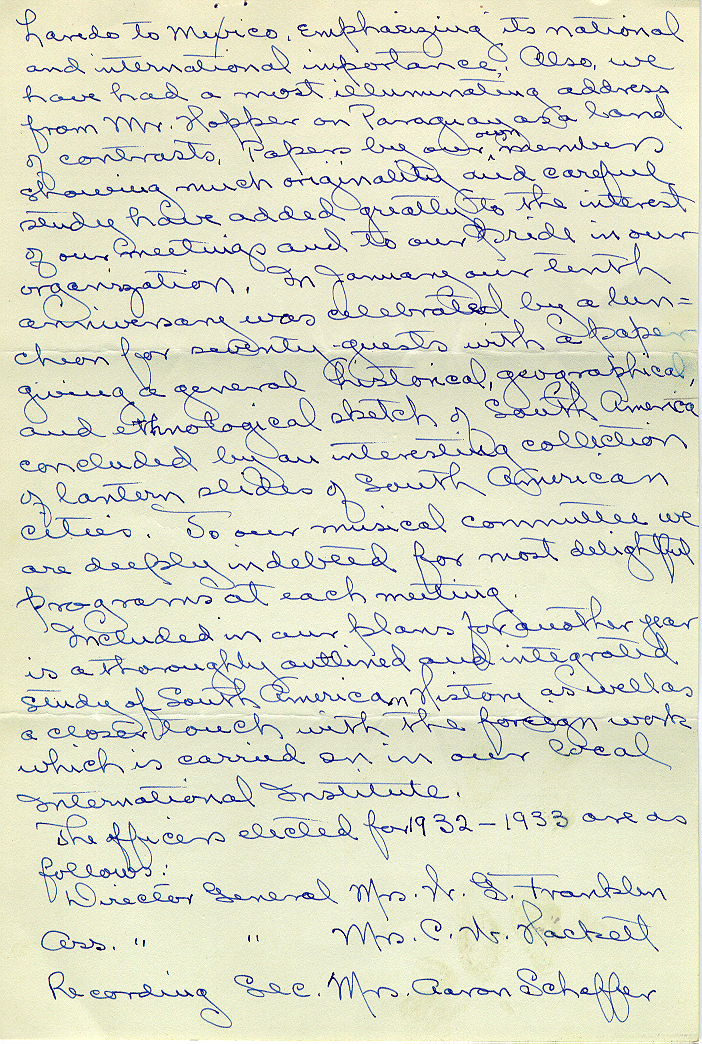 Laredo to Mexico, emphasizing its national
and international importance. Also, we
have had a most illuminating address
from Mr. Hopper on Paraguay as a land
of contrasts. Papers by our own members
showing much originality and careful
study have added greatly to the interest
of our meetings and to our pride in our
organization. In January our tenth
anniversary was celebrated by a lun=
cheon for seventy guests with a paper
giving a general historical, geographical,
and ethnological sketch of South America
concluded by an interesting collection
of lantern slides of South American
cities. To our musical committee we
are deeply indebted for most delightful
programs at each meeting.
Included in our plans for another year
is a thoroughly outlined and integrated
study of South American History as well as
a closer touch with the foreign work
which is carried on in our local
International Institute.
The officers elected for 1932-1933 are as
follows:
Director General Mrs. W. G. Franklin
Ass. " " Mrs. C. W. Hackett
Recording Sec. Mrs. Aaron Schaffer